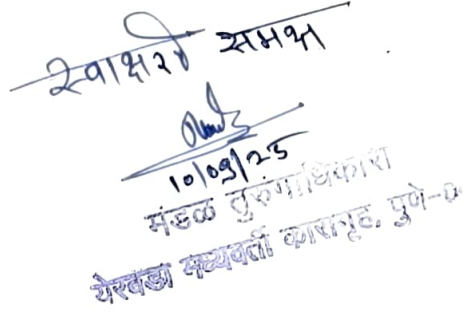 स्वाक्षरी समक्ष
10/09/25
मंडळ तुरुंगाधिकारी
येरवडा मध्यवर्ती कारागृह, पुणे-